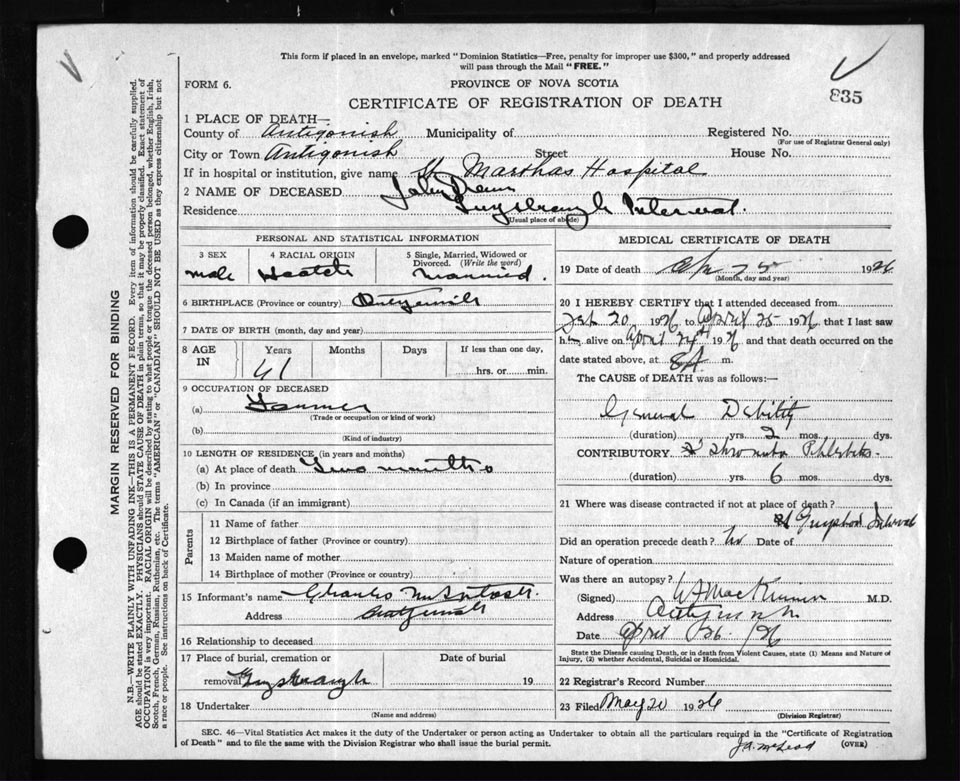 This form if placed in an envelope, marked "Dominion Statistics—Free, penalty for improper use $300," and properly addressed
will pass through the Mail "FREE."
835
FORM 6.
PROVINCE OF NOVA SCOTIA
CERTIFICATE OF REGISTRATION OF DEATH
1 PLACE OF DEATH—
County of Antigonish Municipality of Registered No.
(For use of Registrar General only)
City or Town Antigonish Street House No.
If in hospital or institution, give name St Marthas Hospital
2 NAME OF DECEASED John
Residence Guysboraugh Interval.
(Usual place of abode)
PERSONAL AND STATISTICAL INFORMATION
3 SEX 4 RACIAL ORIGIN 5 Single, Married, Widowed or
Divorced. (Write the word)
male Married.
6 BIRTHPLACE (Province or country)
7 DATE OF BIRTH (month, day and year)
8 AGE IN Years Months Days If less than one day,
61 hrs. or min.
9 OCCUPATION OF DECEASED
(a) Farmer
(Trade or occupation or kind of work)
(b)
(Kind of industry)
10 LENGTH OF RESIDENCE (in years and months)
(a) At place of death Two months
(b) In province
(c) In Canada (if an immigrant)
Parents
11 Name of father
12 Birthplace of father (Province or country)
13 Maiden name of mother
14 Birthplace of mother (Province or country)
15 Informant's name Charles McIntosh.
Address
16 Relationship to deceased
17 Place of burial, cremation or Date of burial
removal Guysboraugh 19
18 Undertaker
(Name and address)
MEDICAL CERTIFICATE OF DEATH
19 Date of death Apr 25 1926
(Month, day and year)
20 I HEREBY CERTIFY that I attended deceased from
Feb 20 1926 to April 25 1926 that I last saw
him alive on April 24th 1926 and that death occurred on the
date stated above, at 8 A m.
The CAUSE of DEATH was as follows:—
General Debility
(duration) yrs. 2 mos. dys.
CONTRIBUTORY
(duration) yrs. 6 mos. dys.
21 Where was disease contracted if not at place of death?
at Interval
Did an operation precede death? no Date of
Nature of operation
Was there an autopsy?
(Signed) W J MacKinnon M.D.
Address Antigonish
Date April 26. 26
State the Disease causing Death, or in death from Violent Causes, state (1) Means and Nature of
Injury, (2) whether Accidental, Suicidal or Homicidal.
22 Registrar's Record Number
23 Filed May 20 1926
(Division Registrar)
J.A. McLeod
SEC. 46—Vital Statistics Act makes it the duty of the Undertaker or person acting as Undertaker to obtain all the particulars required in the "Certificate of Registration
of Death" and to file the same with the Division Registrar who shall issue the burial permit.
(OVER)
MARGIN RESERVED FOR BINDING
N.B.—WRITE PLAINLY WITH UNFADING INK—THIS IS A PERMANENT RECORD. Every item of information should be carefully supplied.
AGE should be stated EXACTLY. PHYSICIANS should STATE CAUSE OF DEATH in plain terms, so that it may be properly classified. Exact statement of
OCCUPATION is very important. RACIAL ORIGIN will be described by stating to what people or tongue the deceased person belonged, whether English, Irish,
Scotch, French, German, Russian, Ruthenian, etc. The terms "AMERICAN" or "CANADIAN" SHOULD NOT BE USED as they express citizenship but not
a race or people. See instructions on back of Certificate.